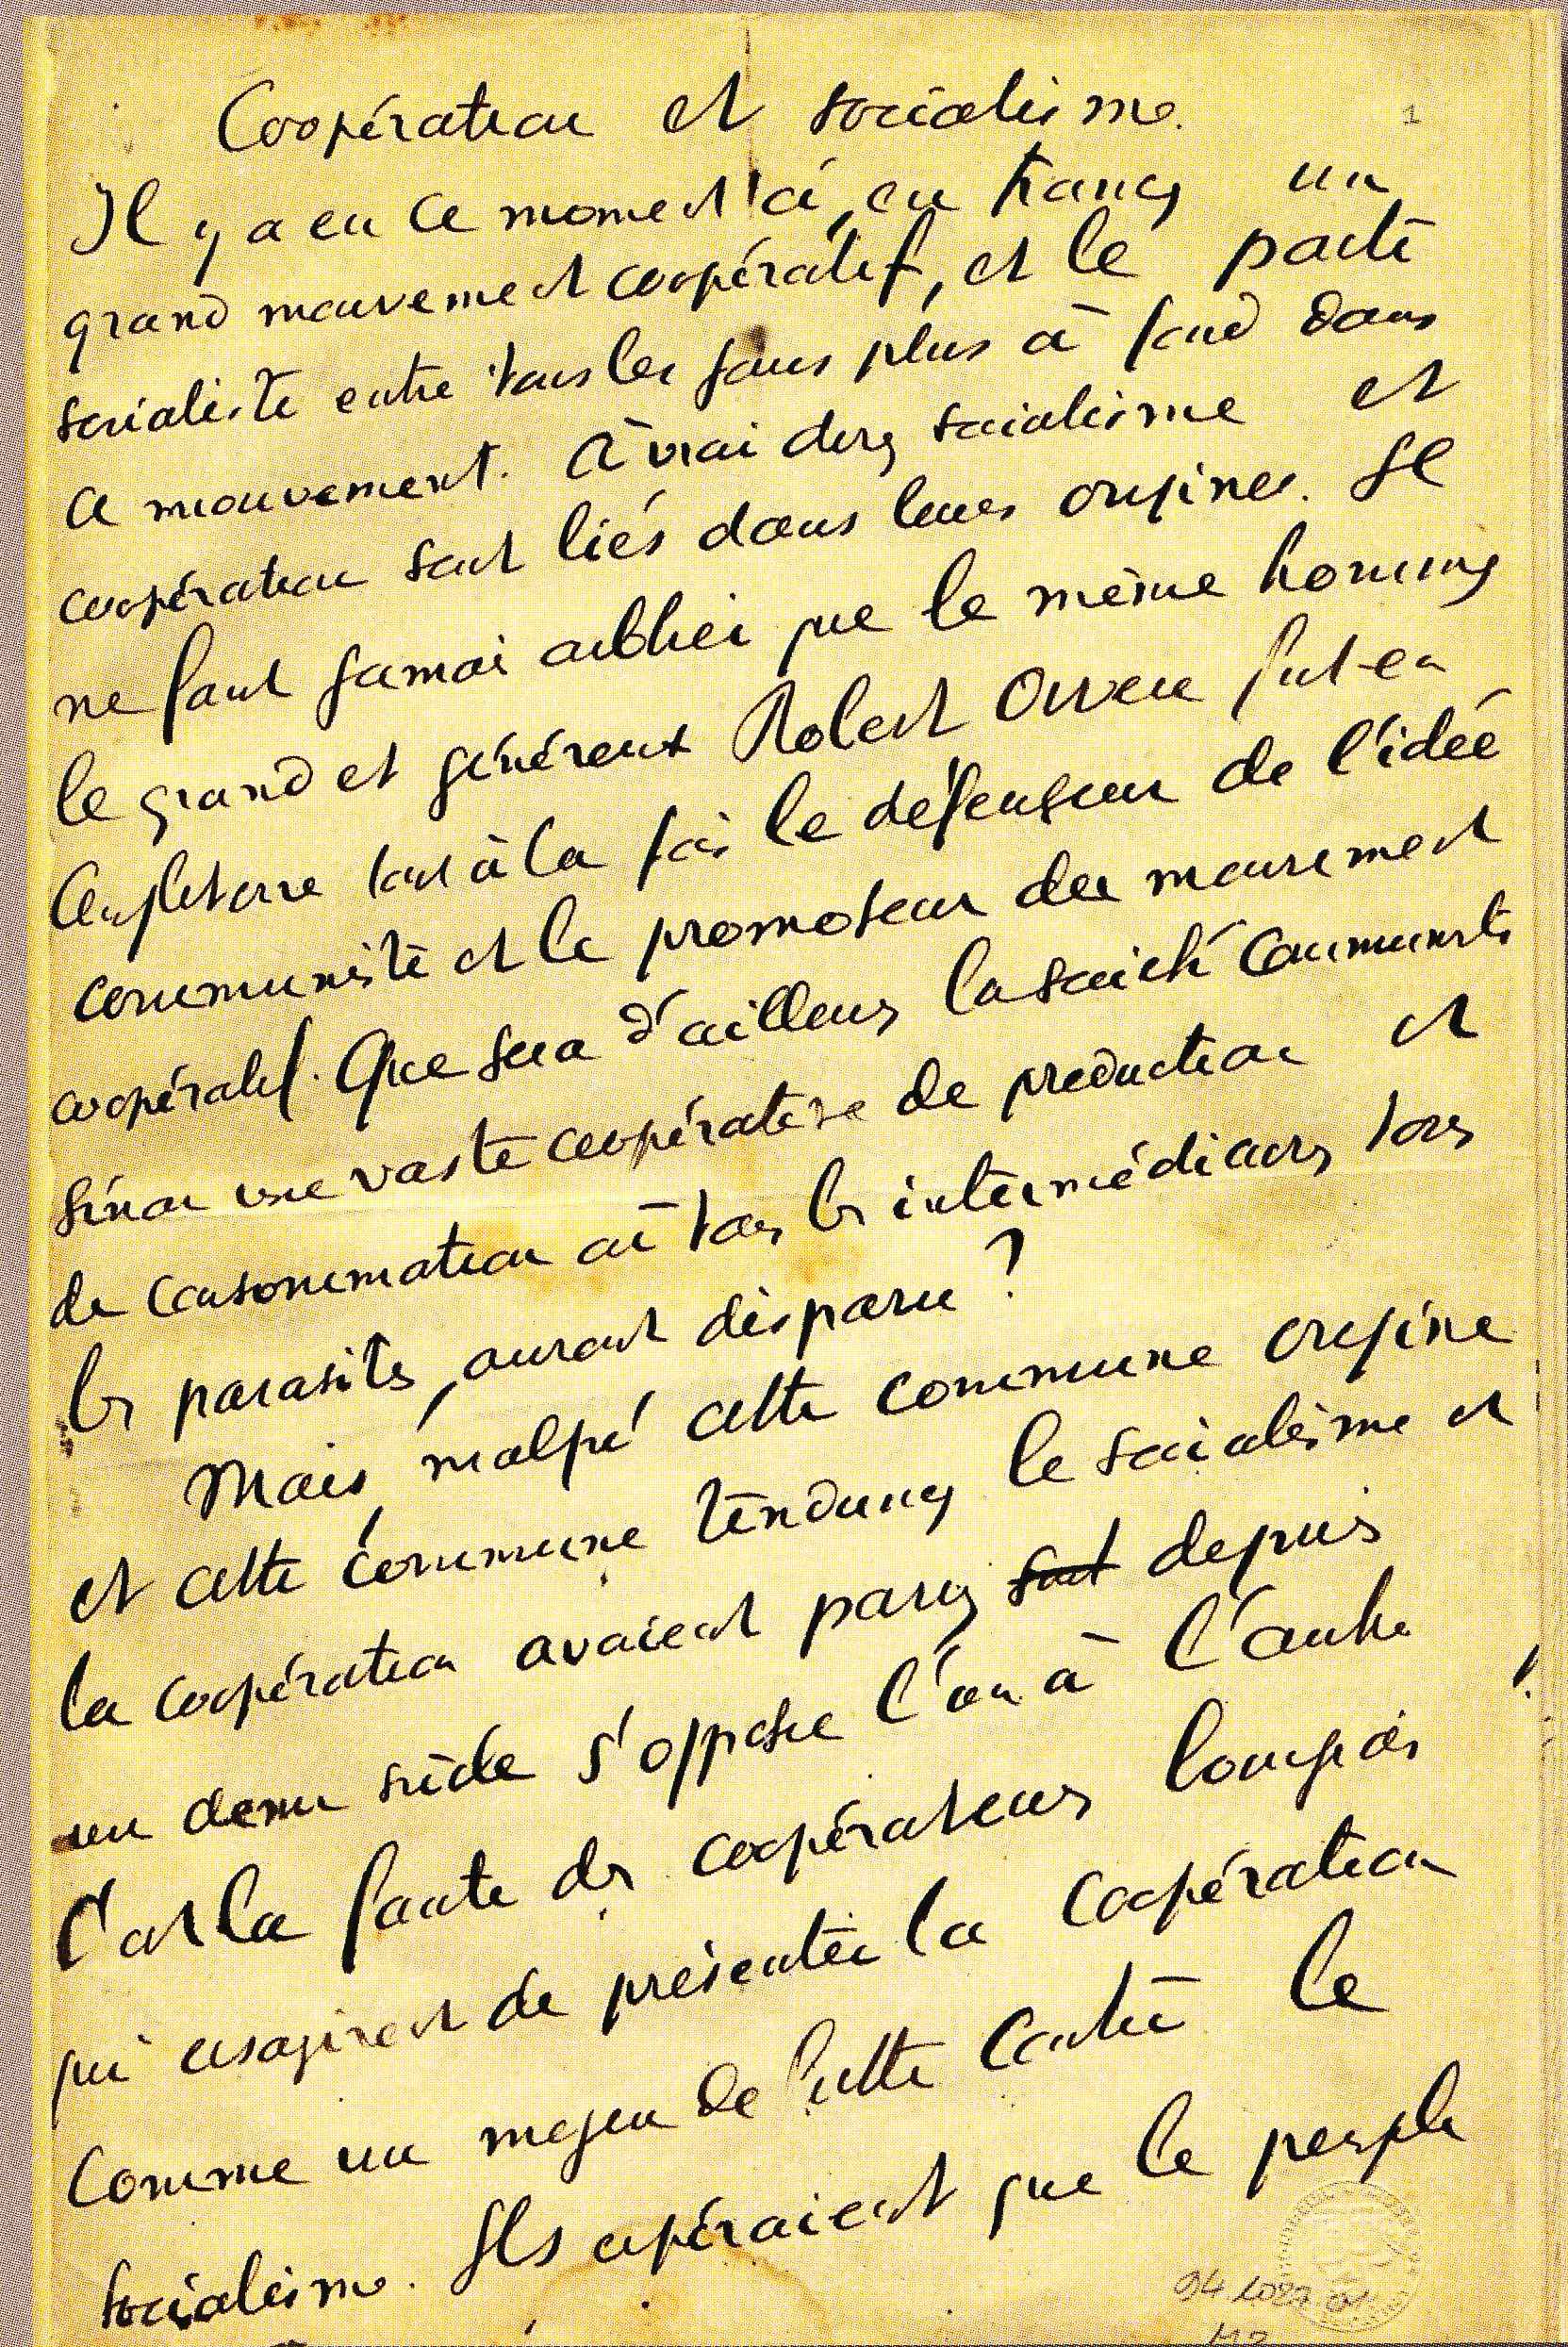 Coopération et socialisme.
1
Il y a en ce moment-ci, en France, un
grand mouvement coopératif, et le parti
socialiste entre tous les jours plus à fond dans
ce mouvement. À vrai dire, socialisme et
coopération sont liés dans leurs origines. Il
ne faut jamais oublier que le même homme,
le grand et généreux Robert Owen fut en
Angleterre tout à la fois le défenseur de l'idée
communiste et le promoteur du mouvement
coopératif. Que sera d'ailleurs la société communiste
sinon une vaste coopérative de production et
de consommation où tous les intermédiaires, tous
les parasites, auront disparu ?
Mais, malgré cette commune origine
et cette commune tendance, le socialisme et
la coopération avaient paru sont depuis
un demi siècle s'opposer l'un à l'autre
C'est la faute des coopérateurs bourgeois
qui essayèrent de présenter la coopération
comme un moyen de lutte contre le
socialisme. Ils espéraient que le peuple